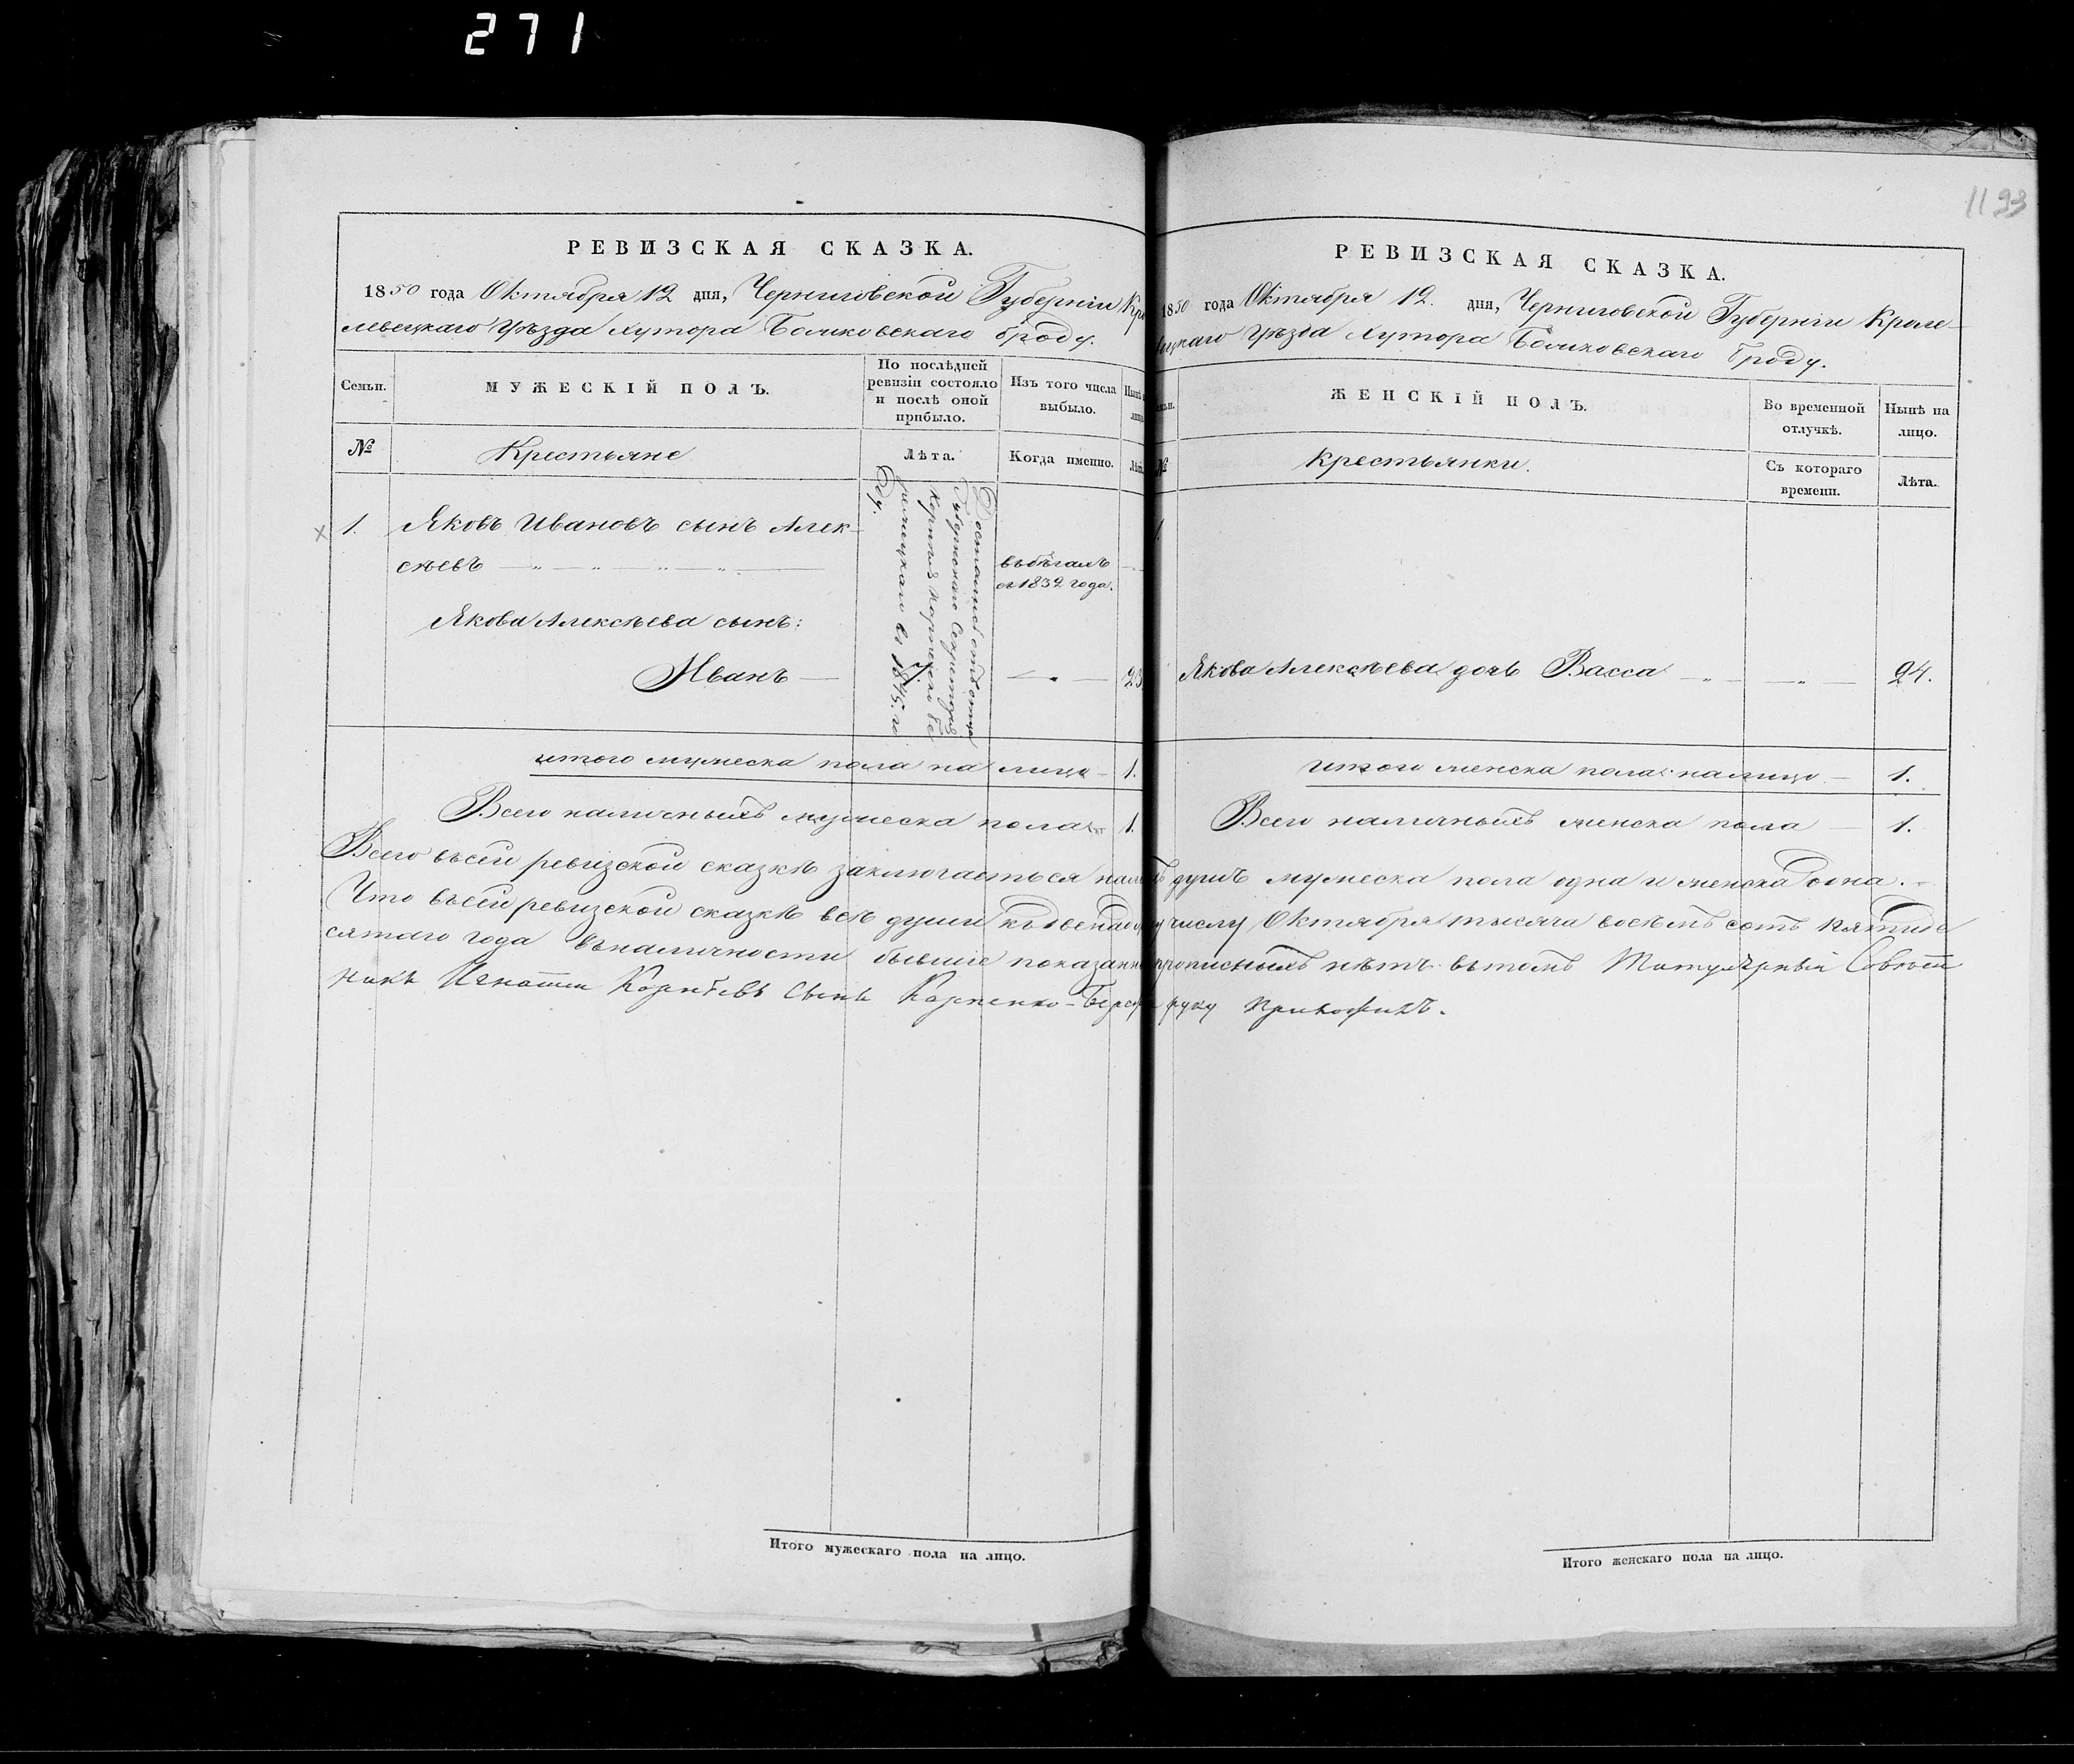 271
1193
РЕВИЗСКАЯ СКАЗКА.
1850 года Октября 12 дня, Черниговской Губерніи Кро
левецкаго Уѣзда Хутора Боликовскаго броду.
Семьи.
МУЖЕСКІЙ ПОЛЪ.
По послѣдней
ревизіи состояло
и послѣ оной
прибыло.
Изъ того числа
выбыло.
№
Крестьяне
Лѣта.
Когда именно.
1. Яковъ Ивановъ сынъ Алек-
сѣевъ
въ бѣгахъ
съ 1832 года.
Достались отъ отца
Губернскаго Секретаря
Корнилія Карпенко Бе
въ 1845. го
ду.
Якова Алексѣева сынъ:
Иванъ 7. 23
итого мужеска пола на лицо 1.
Всего наличныхъ мужеска пола 1.
РЕВИЗСКАЯ СКАЗКА.
1850 года Октября 12. дня, Черниговской Губерніи Кроле-
вецкаго Уѣзда Хутора Боликовскаго броду.
ЖЕНСКІЙ ПОЛЪ.
Во временной
отлучкѣ.
Нынѣ на
лицо.
№
Крестьянки.
Съ котораго
времени.
Лѣта.
1.
Якова Алексѣева дочь Васса 24.
итого женска пола на лицо 1.
Всего наличныхъ женска пола 1.
Всего въ сей ревизской сказкѣ заключаеться налич душъ мужеска пола одна и женска одна.
Что въ сей ревизской сказкѣ всѣ души къ двенадц числу Октября тысяча восемъ сотъ пятиде
сятаго года въ наличности бывшіе показанны прописныхъ нѣтъ. въ томъ Титулярный Совѣт
никъ Игнатій Корнѣевъ Сынъ Карпенко- руку приложилъ.
Итого мужескаго пола на лицо.
Итого женскаго пола на лицо.